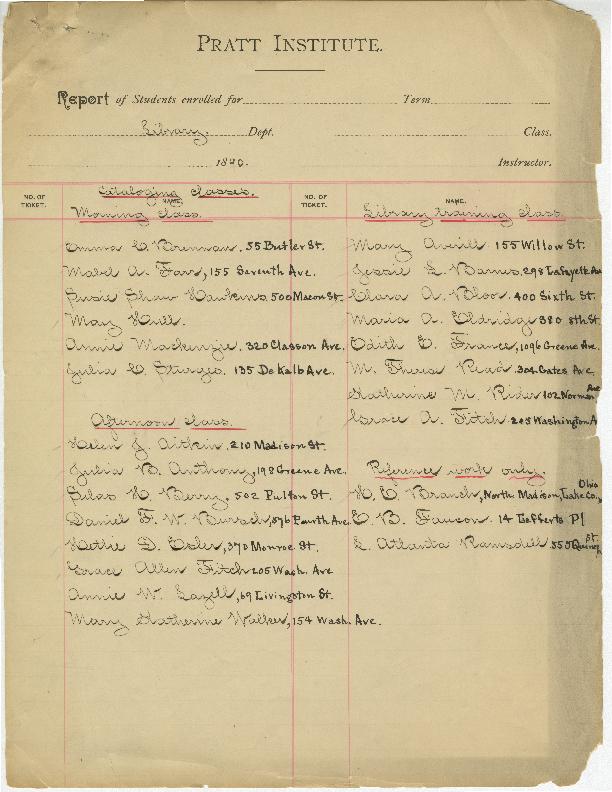 PRATT INSTITUTE.
Report of Students enrolled for Term
Library. Dept. Class.
1890. Instructor.
NO. OF TICKET.
NAME.
Cataloging classes.
Morning class.
Emma C. Brennan, 55 Butler St.
Mabel A. Farr, 155 Seventh Ave.
Susie Shaw Hawkins 500 Macon St.
May Hull.
Annie Mackenzie. 320 Classon Ave.
Julia C. Sturges. 135 DeKalb Ave.
Afternoon class.
Helen J. Aitkin, 210 Madison St.
Julia B. Anthony, 198 Greene Ave.
Silas H. Berry. 502 Fulton St.
Daniel F. W. Bursch, 576 Fourth Ave.
Hettie D. Esler, 370 Monroe St.
Grace Allen Fitch 205 Wash. Ave
Annie W. Lazell, 69 Livingston St.
Mary Katherine Walker, 154 Wash. Ave.
NO. OF TICKET.
NAME.
Library training class.
Mary Averill 155 Willow St.
Jessie L. Barnes, 298 Lafayette Av
Clara A. Bloor. 400 Sixth St.
Maria A. Eldridge 380 8th St.
Edith E. France, 1096 Greene Ave.
M. Therese Read. 304 Gates Ave
Katherine M. Rider 102 Norman Ave
Grace A. Fitch 205 Washington A
Reference work only.
H. E. Branch, North Madison, Lake Co., Ohio
E. B. Faucon. 14 Lefferts Pl
L. Atlanta Ramsdell 555 Quincy St.